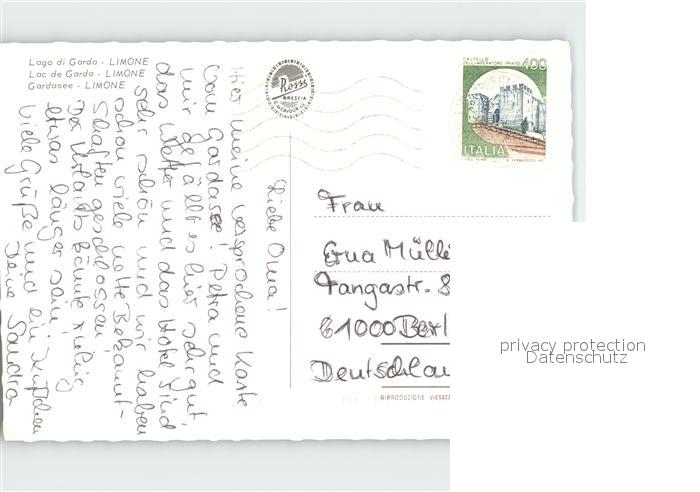 Lago di Garda - LIMONE
Lac de Garda - LIMONE
Gardasee - LIMONE
Ross
BRESCIA
CASTELLO
DELL'IMPERATORE · PRATO
400
ITALIA
Liebe Oma!
Hier meine versprochene Karte
vom Gardasee! Petra und
mir gefällt es hier sehr gut,
das Wetter und das Hotel sind
sehr schön und wir haben
schon viele nette Bekannt-
schaften geschlossen.
Der Urlaub könnte ruhig
etwas länger sein.
Viele Grüße und ein Küßchen
Deine Sandra
Frau
Müll
Tangastr. 8
61000 Berl
Deutschlau
RIPRODUZIONE VIETATA
privacy protection
Datenschutz